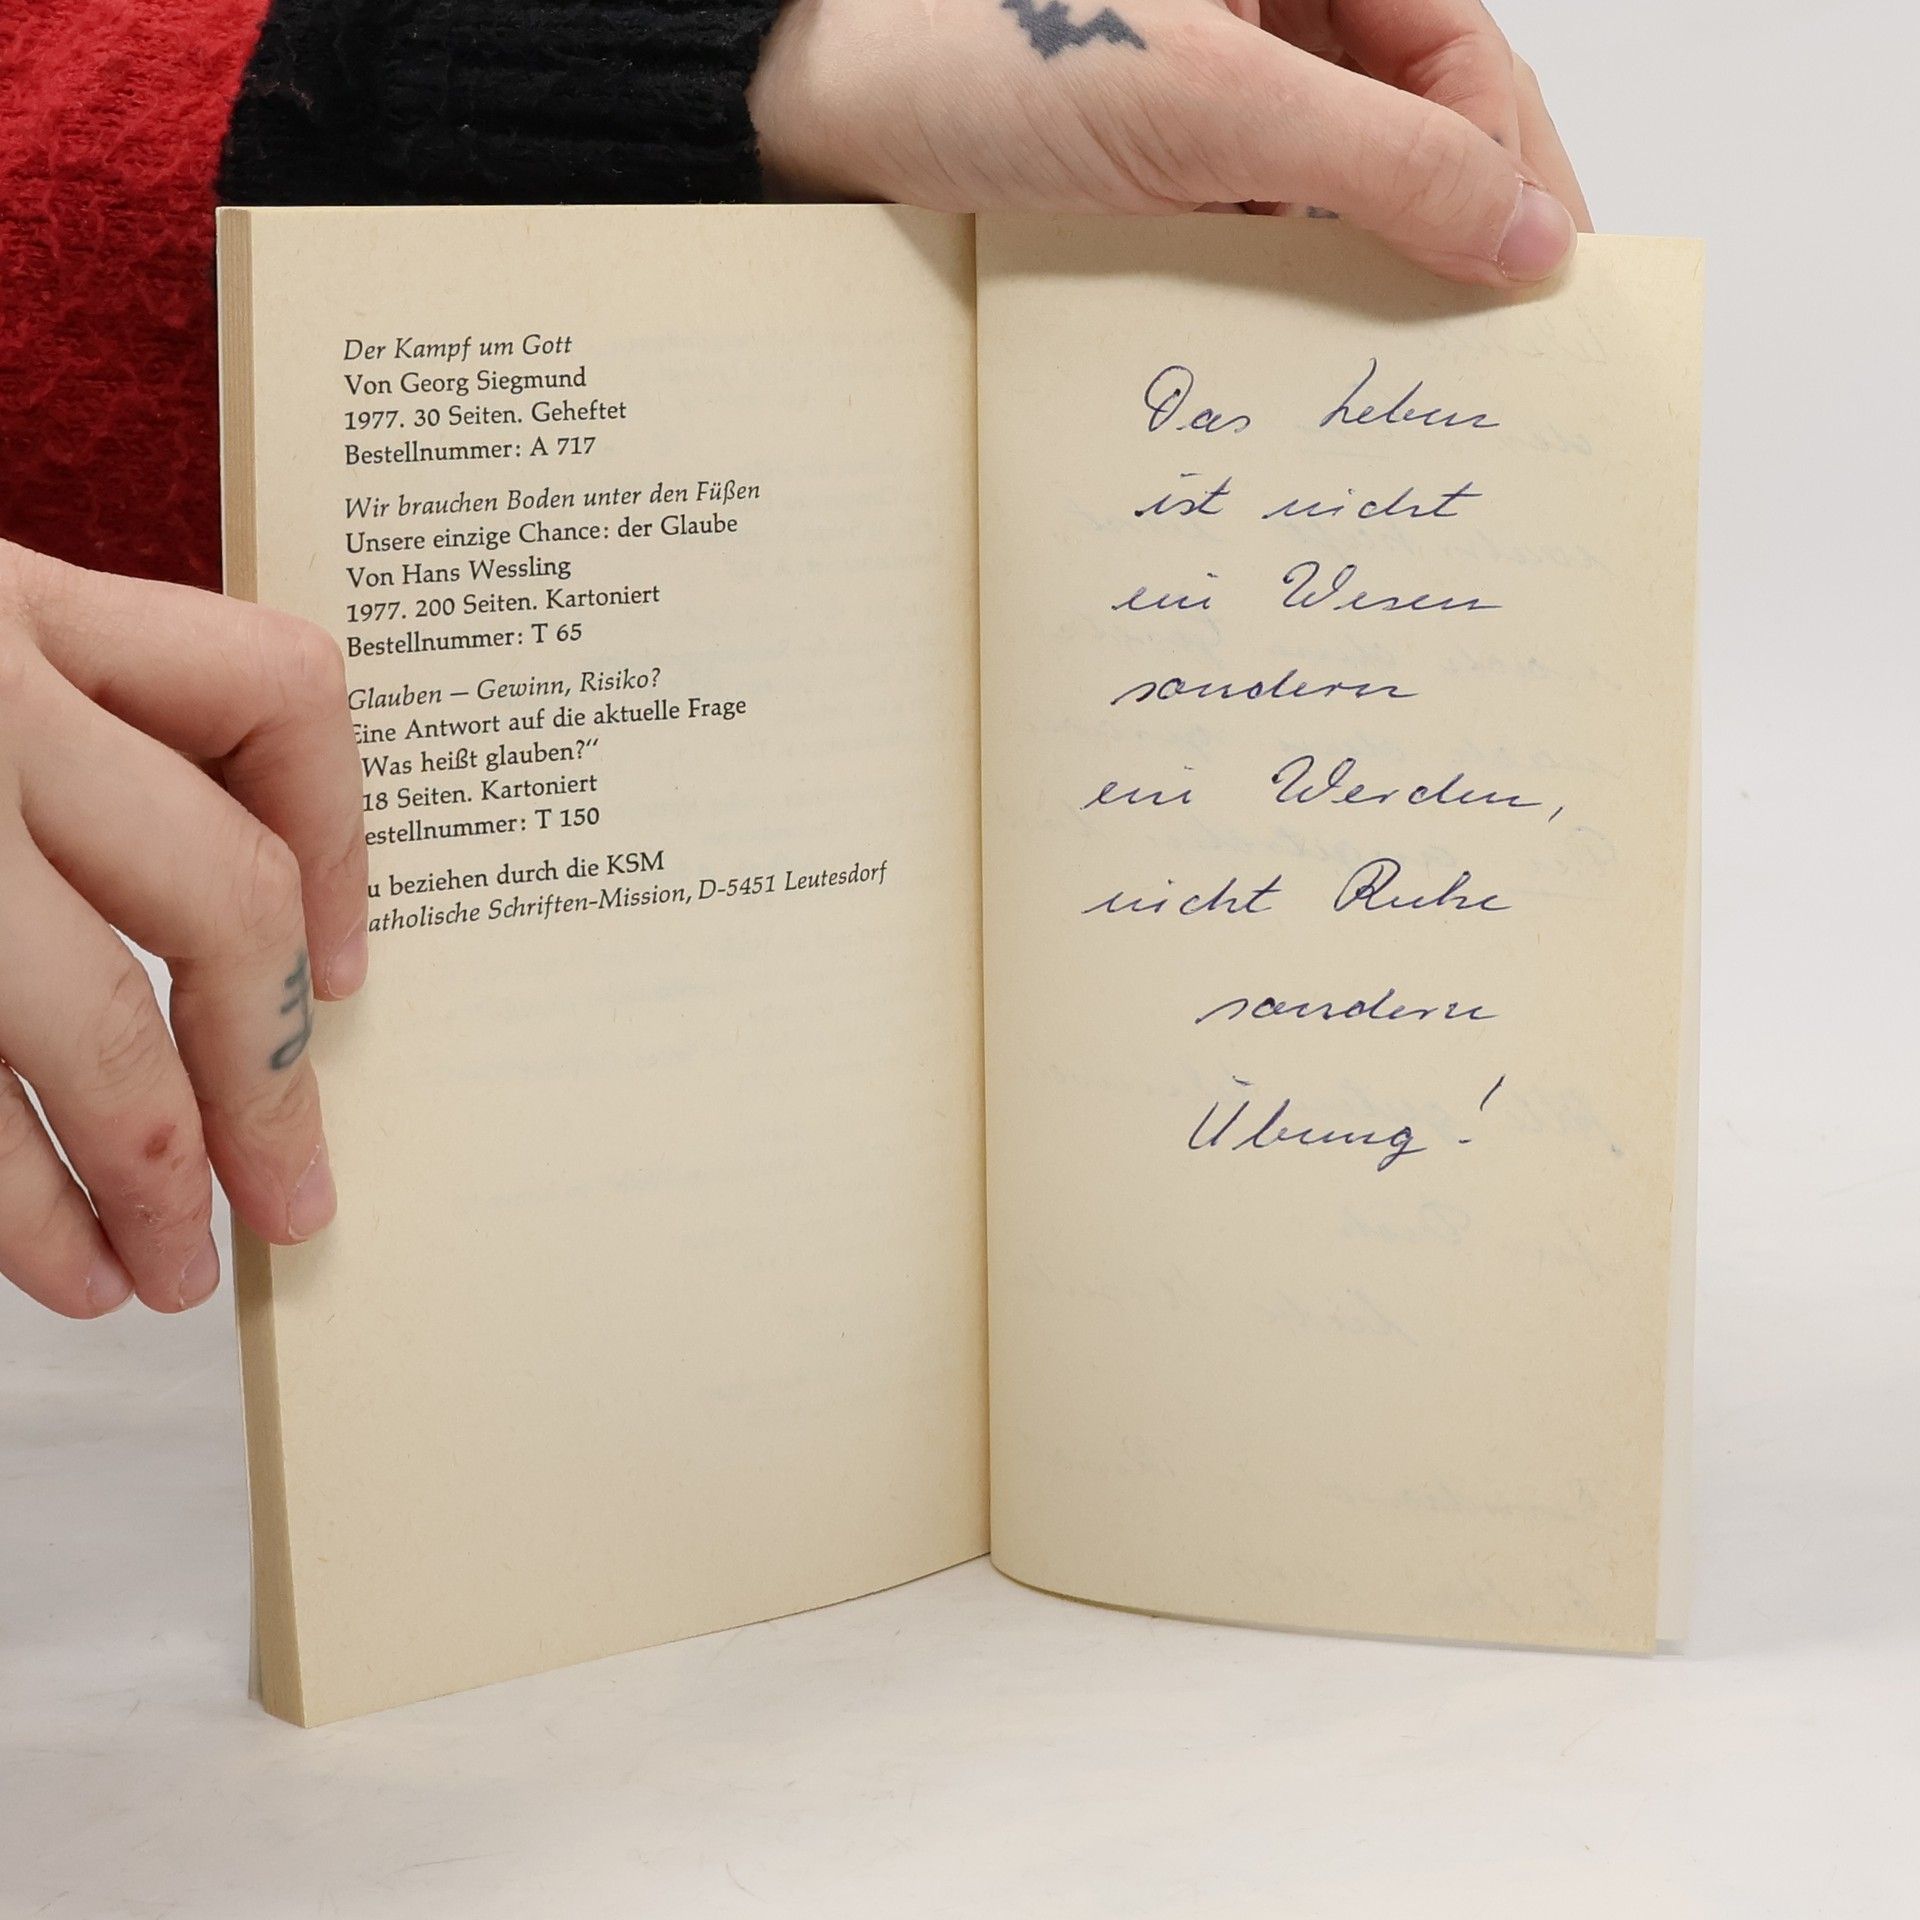 Der Kampf um Gott
Von Georg Siegmund
1977. 30 Seiten. Geheftet
Bestellnummer: A 717
Wir brauchen Boden unter den Füßen
Unsere einzige Chance: der Glaube
Von Hans Wessling
1977. 200 Seiten. Kartoniert
Bestellnummer: T 65
Glauben — Gewinn, Risiko?
Eine Antwort auf die aktuelle Frage
Was heißt glauben?“
18 Seiten. Kartoniert
estellnummer: T 150
u beziehen durch die KSM
atholische Schriften-Mission, D-5451 Leutesdorf
Das Leben
ist nicht
ein Wesen
sondern
ein Werden,
nicht Ruhe
sondern
Übung!